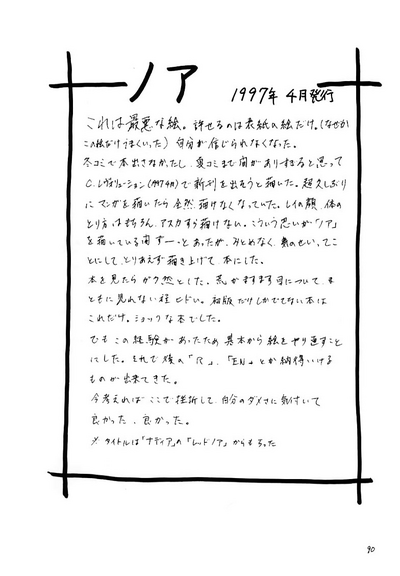 ノア
1997年 4月発行
これは最悪な絵。許せるのは表紙の絵だけ。(なぜか
この絵だけうまくいった) 自分が信じられなくなった。
冬コミで本出さなかったし、夏コミまで間がありすぎると思って
C.レヴォリューション(1997 4月)で新刊を出そうと描いた。超久しぶり
にマンガを描いたら全然描けなくなっていた。レイの顔、体の
とり方はもちろん、アスカすら描けない。こういう思いが「ノア」
を描いている間ずーっとあったが、みとめなく、気のせいってこ
とにして、とりあえず描き上げて本にした。
本を見たらがく然とした。荒がますます目について、ま
ともに見れない程ヒドい。初版だけしかでてない本は
これだけ。ショックな本でした。
でもこの経験があったため基本から絵をやり直すこと
にした。それで後の「R」、「EN」とか納得いける
ものが出来てきた。
今考えればここで挫折して、自分のダメさに気付いて
良かった、良かった。
※タイトルは「ナディア」の「レッドノア」からもらった
90